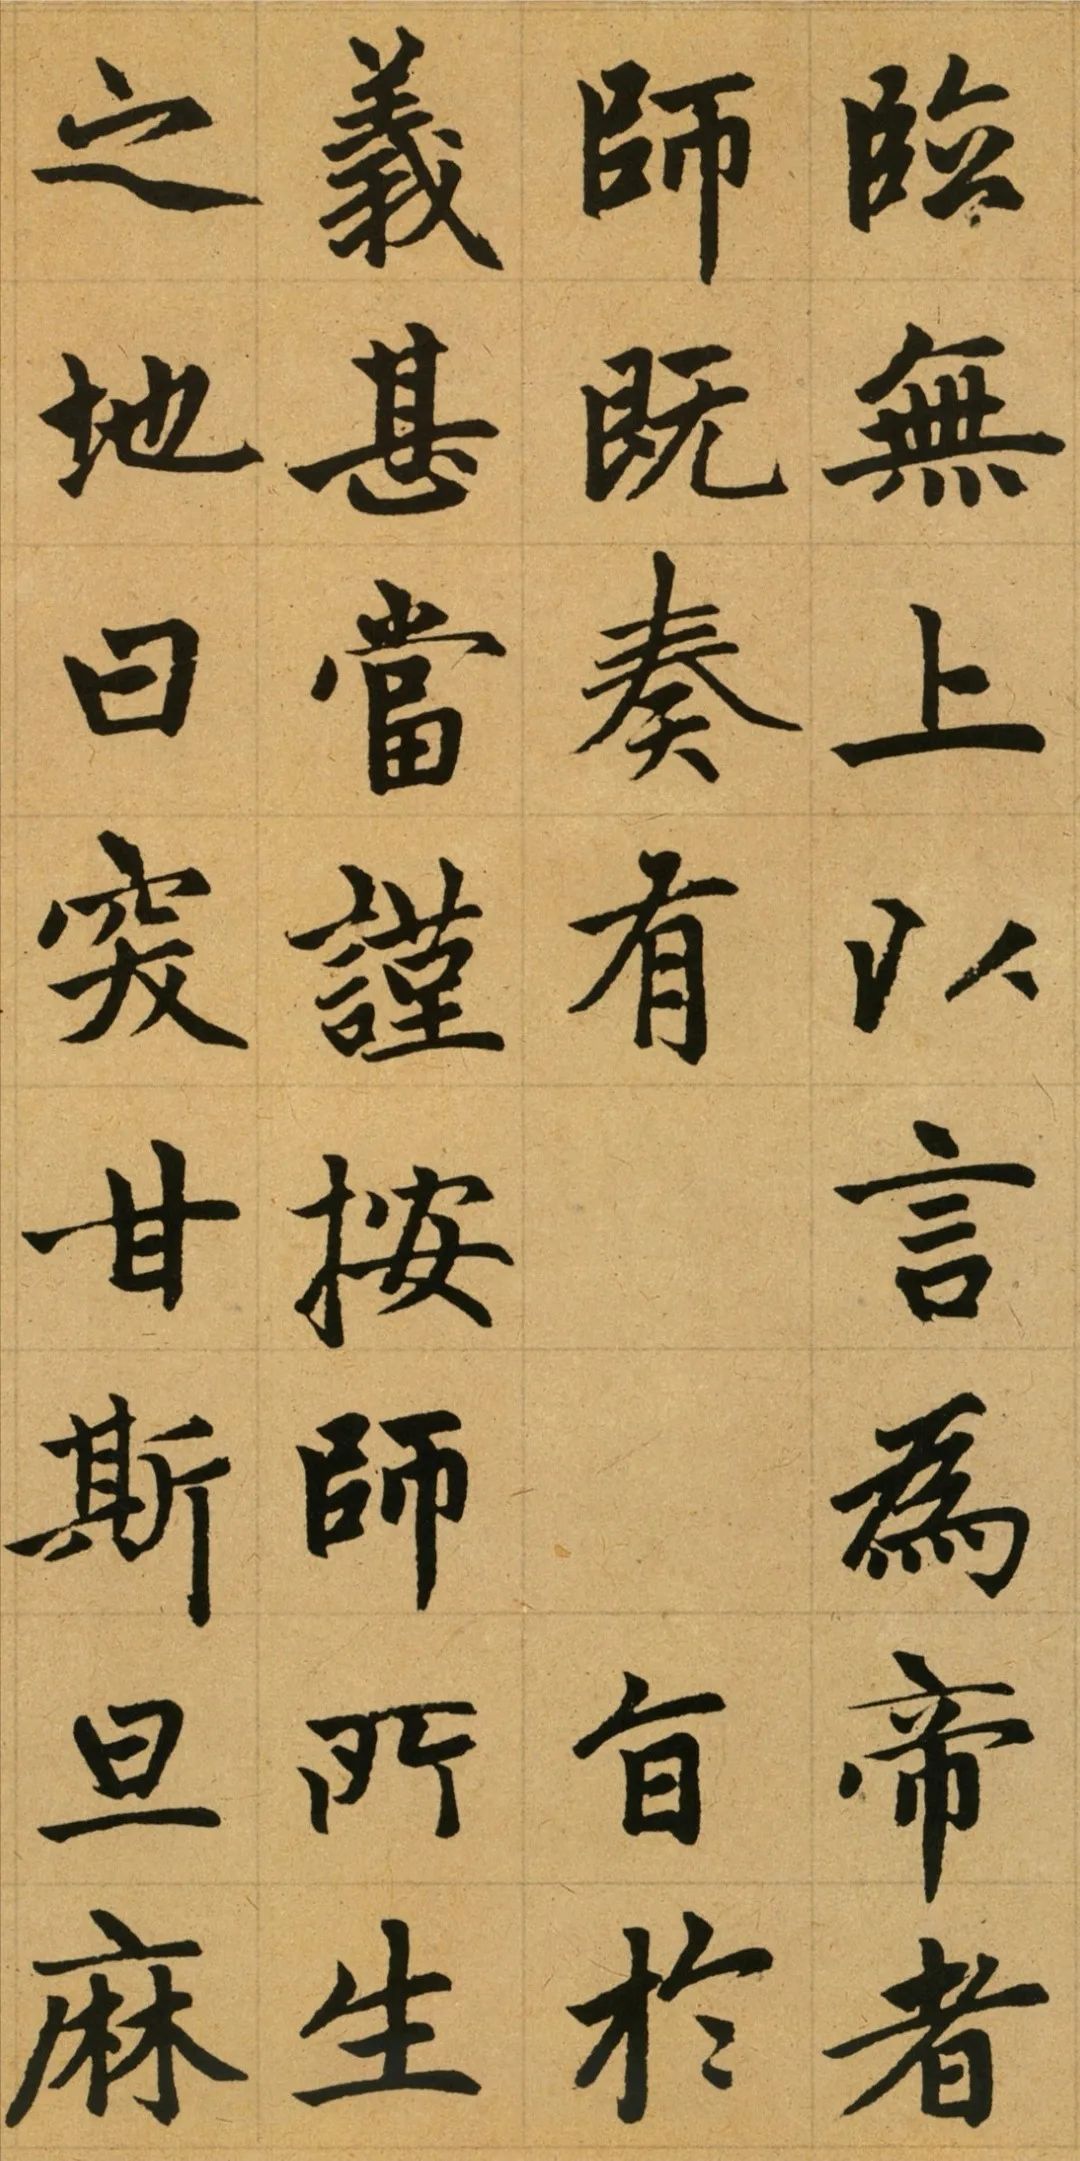 臨無上以言爲帝者
師既奏有旨於
義甚當謹按師所生
之地曰突甘斯旦麻